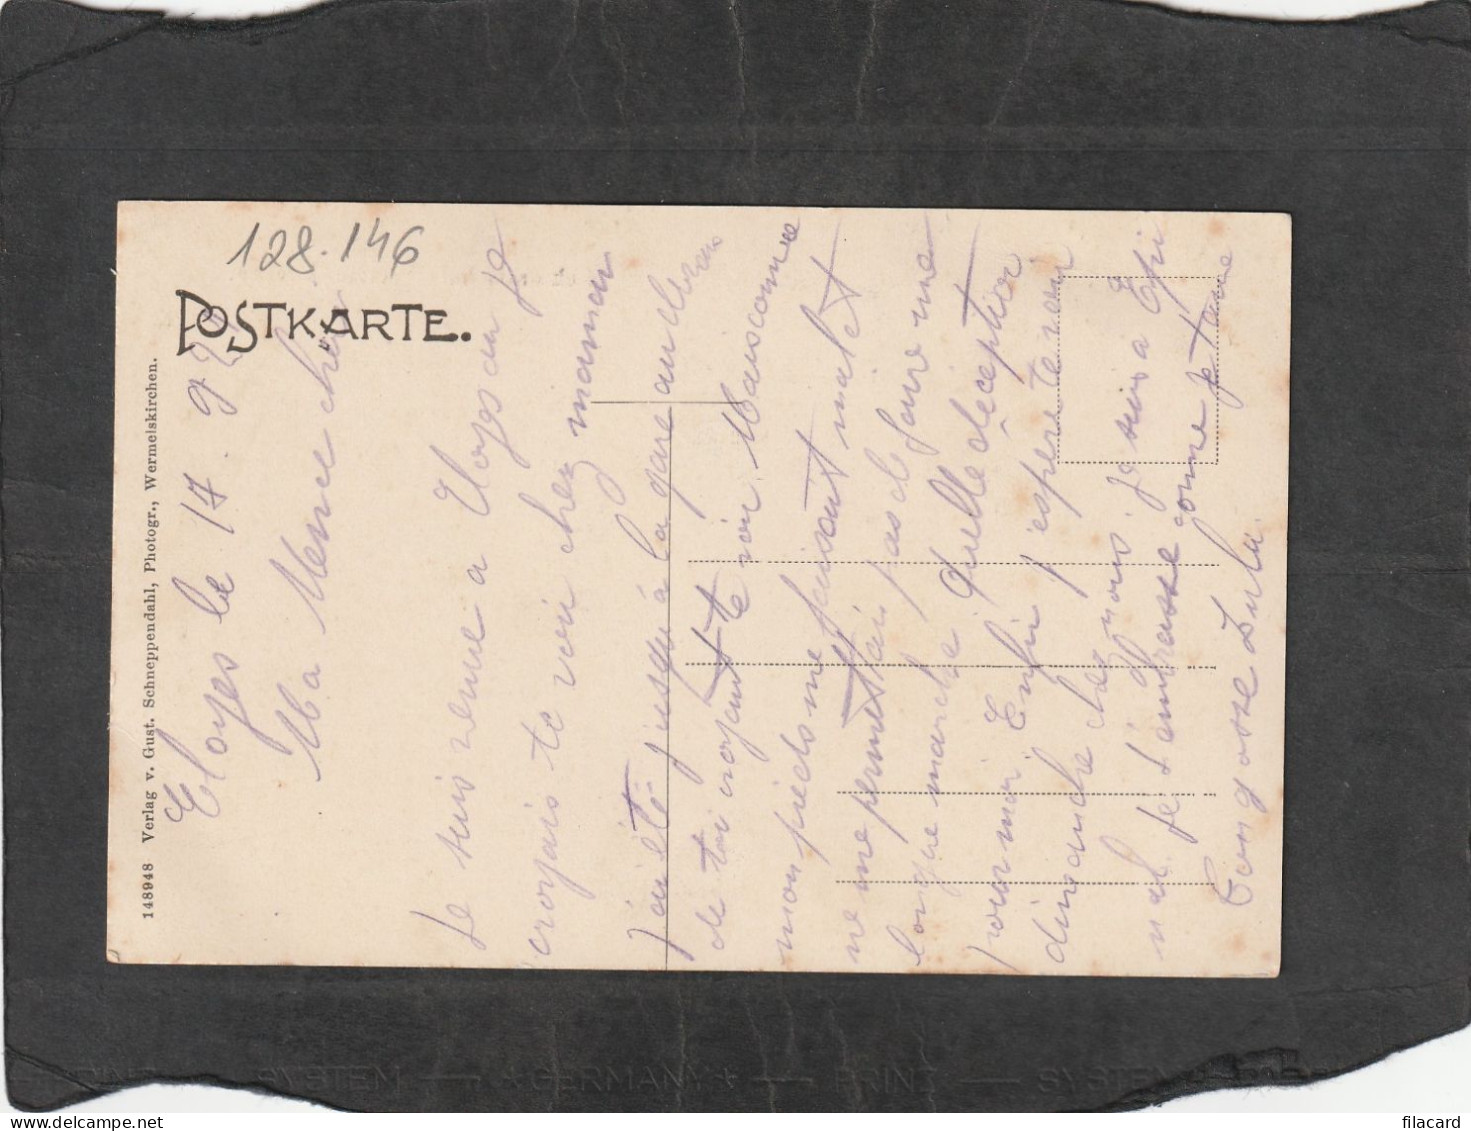 128-146
POSTKARTE.
148948 Verlag v. Gust. Schneppendahl, Photogr., Wermelskirchen.
Eloyes le 17. 9
Ma
Je suis venue a Eloyes
croyais te voir chez maman
j'ai été jusqu'à la gare au devan
de toi croyant te voir. Mais comme
mon pieds me faisant mal et
ne me permettai pas de faire une
longue marche. Quelle déception
pour moi. Enfin j'espère te voir
dimanche chez nous. je suis a Epi
nal je t'embrasse comme je
Ton gosse
PRINZ SYSTEM — *GERMANY* — PRINZ — SYSTEM
filacard